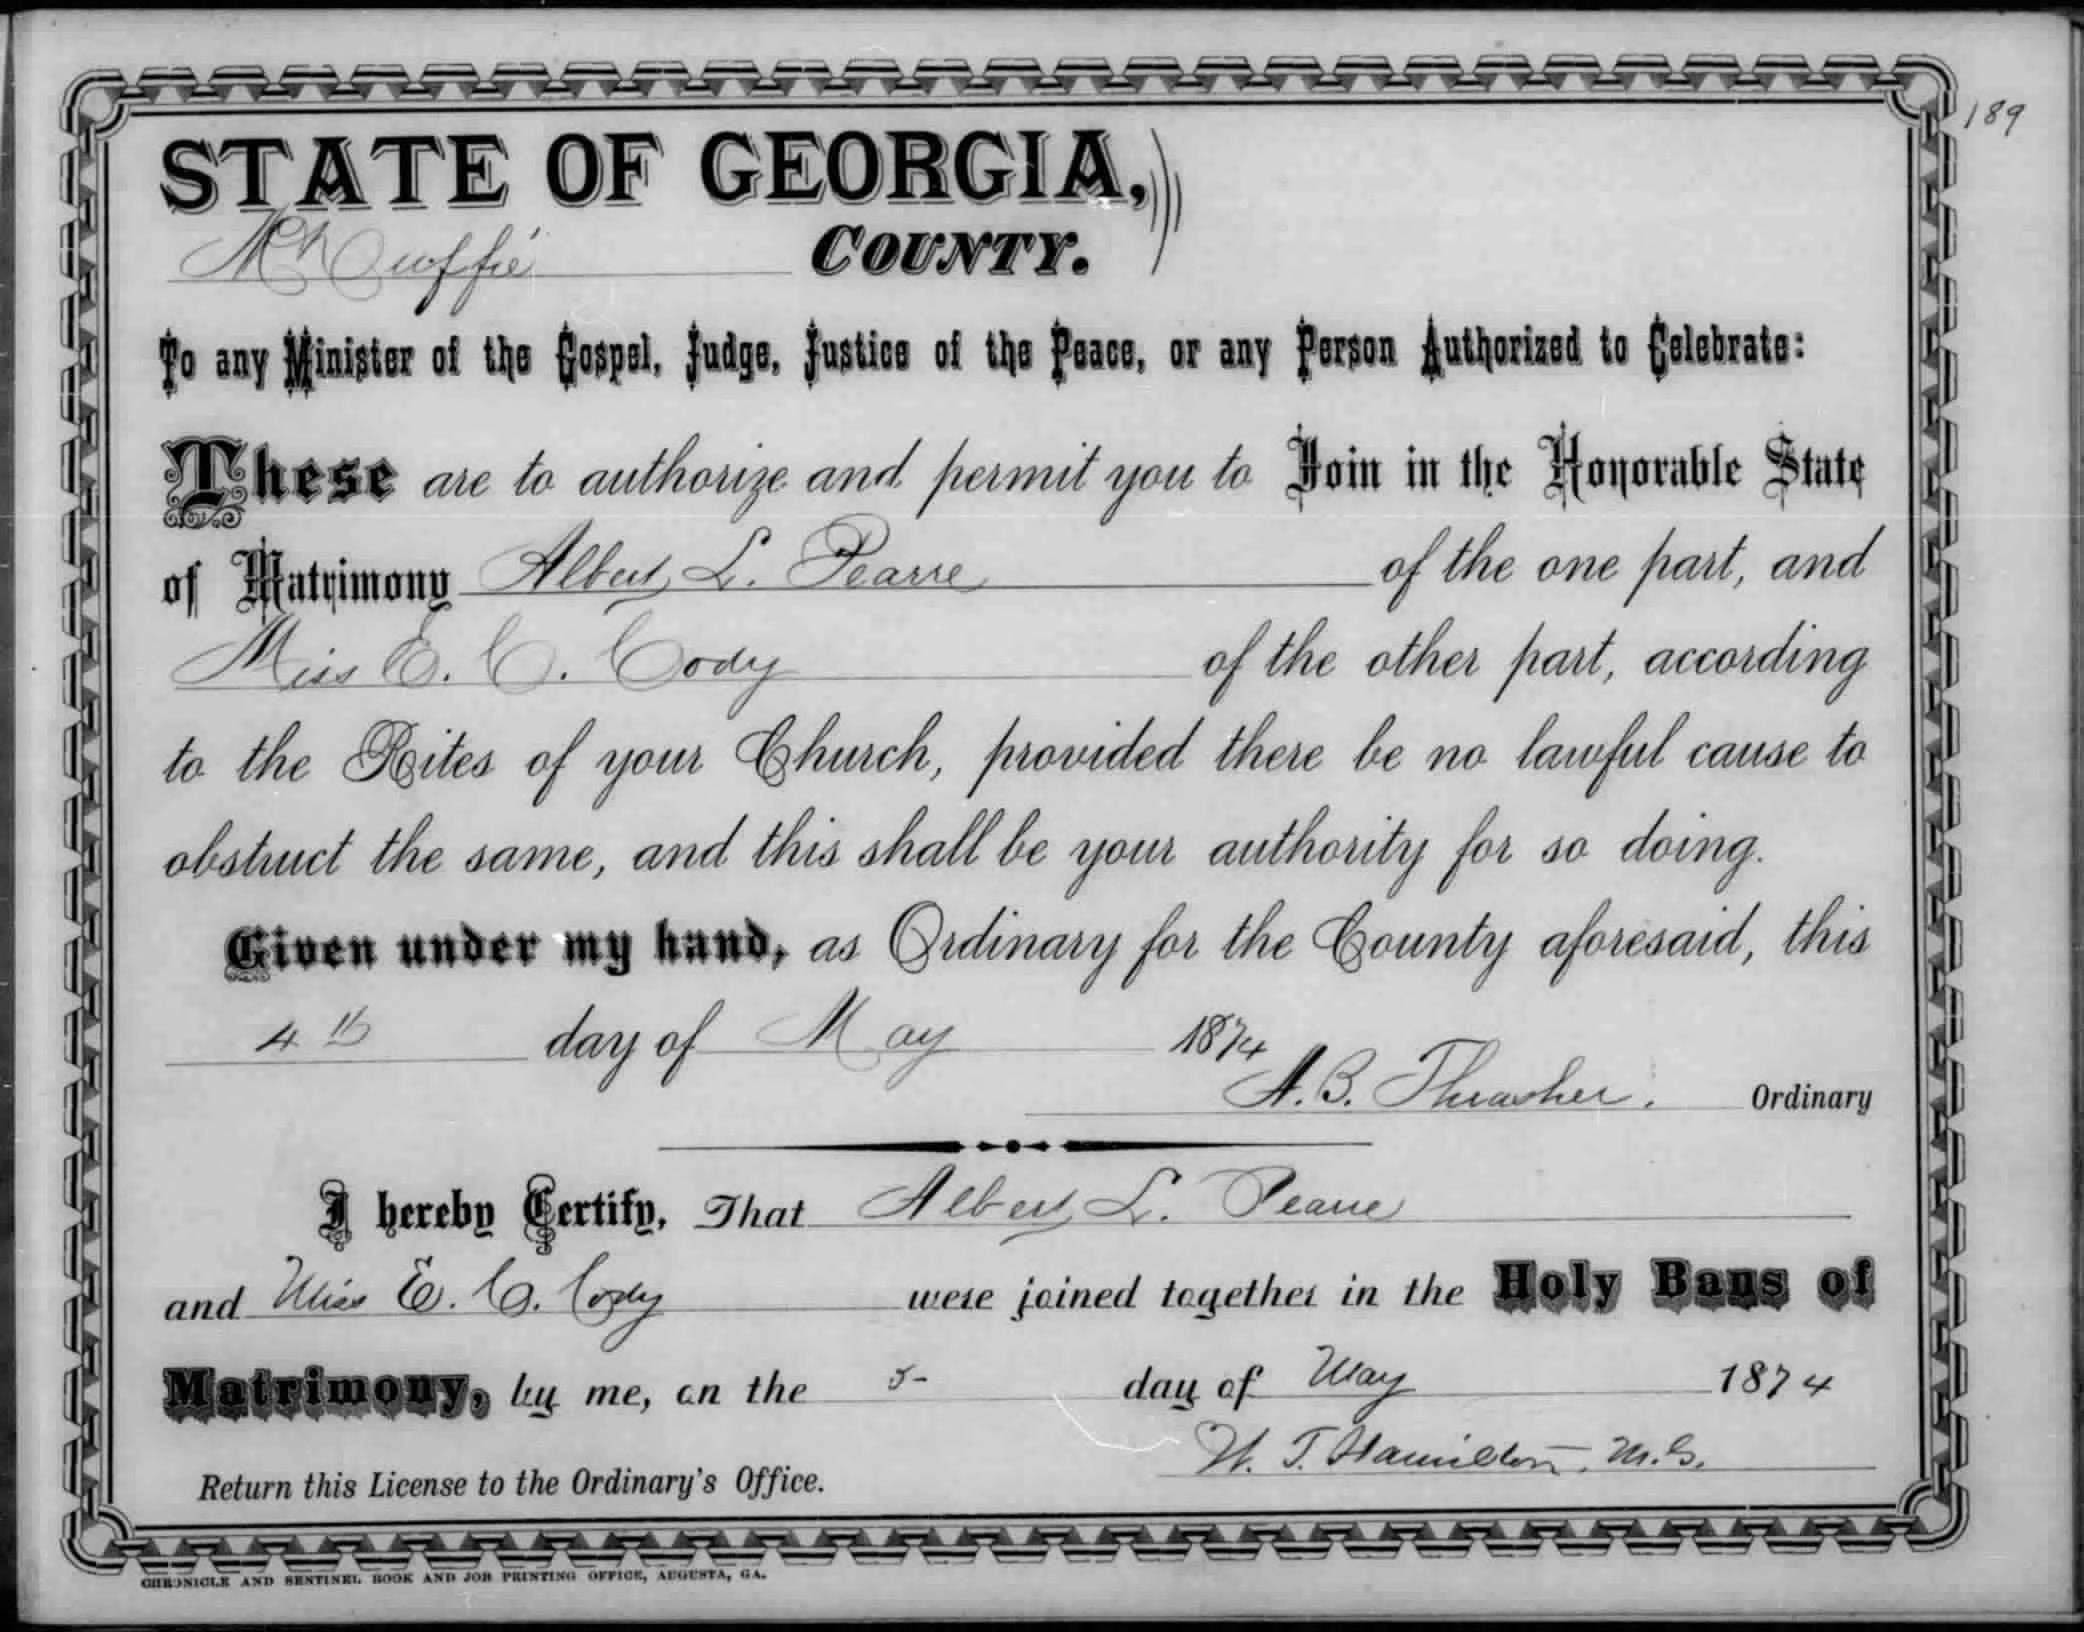 189
STATE OF GEORGIA,
McDuffie COUNTY.
To any Minister of the Gospel, Judge, Justice of the Peace, or any Person Authorized to Celebrate:
These are to authorize and permit you to Join in the Honorable State
of Matrimony Albert L. Pearre of the one part, and
Miss E. C. Cody of the other part, according
to the Rites of your Church, provided there be no lawful cause to
obstruct the same, and this shall be your authority for so doing.
Given under my hand, as Ordinary for the County aforesaid, this
4th day of May 1874
A. B. Thrasher. Ordinary
I hereby Certify, That Albert L. Pearre
and Miss E. C. Cody were joined together in the Holy Bans of
Matrimony, by me, on the 5- day of May 1874
W. T. Hamilton, M.G.
Return this License to the Ordinary's Office.
CHRONICLE AND SENTINEL BOOK AND JOB PRINTING OFFICE, AUGUSTA, GA.